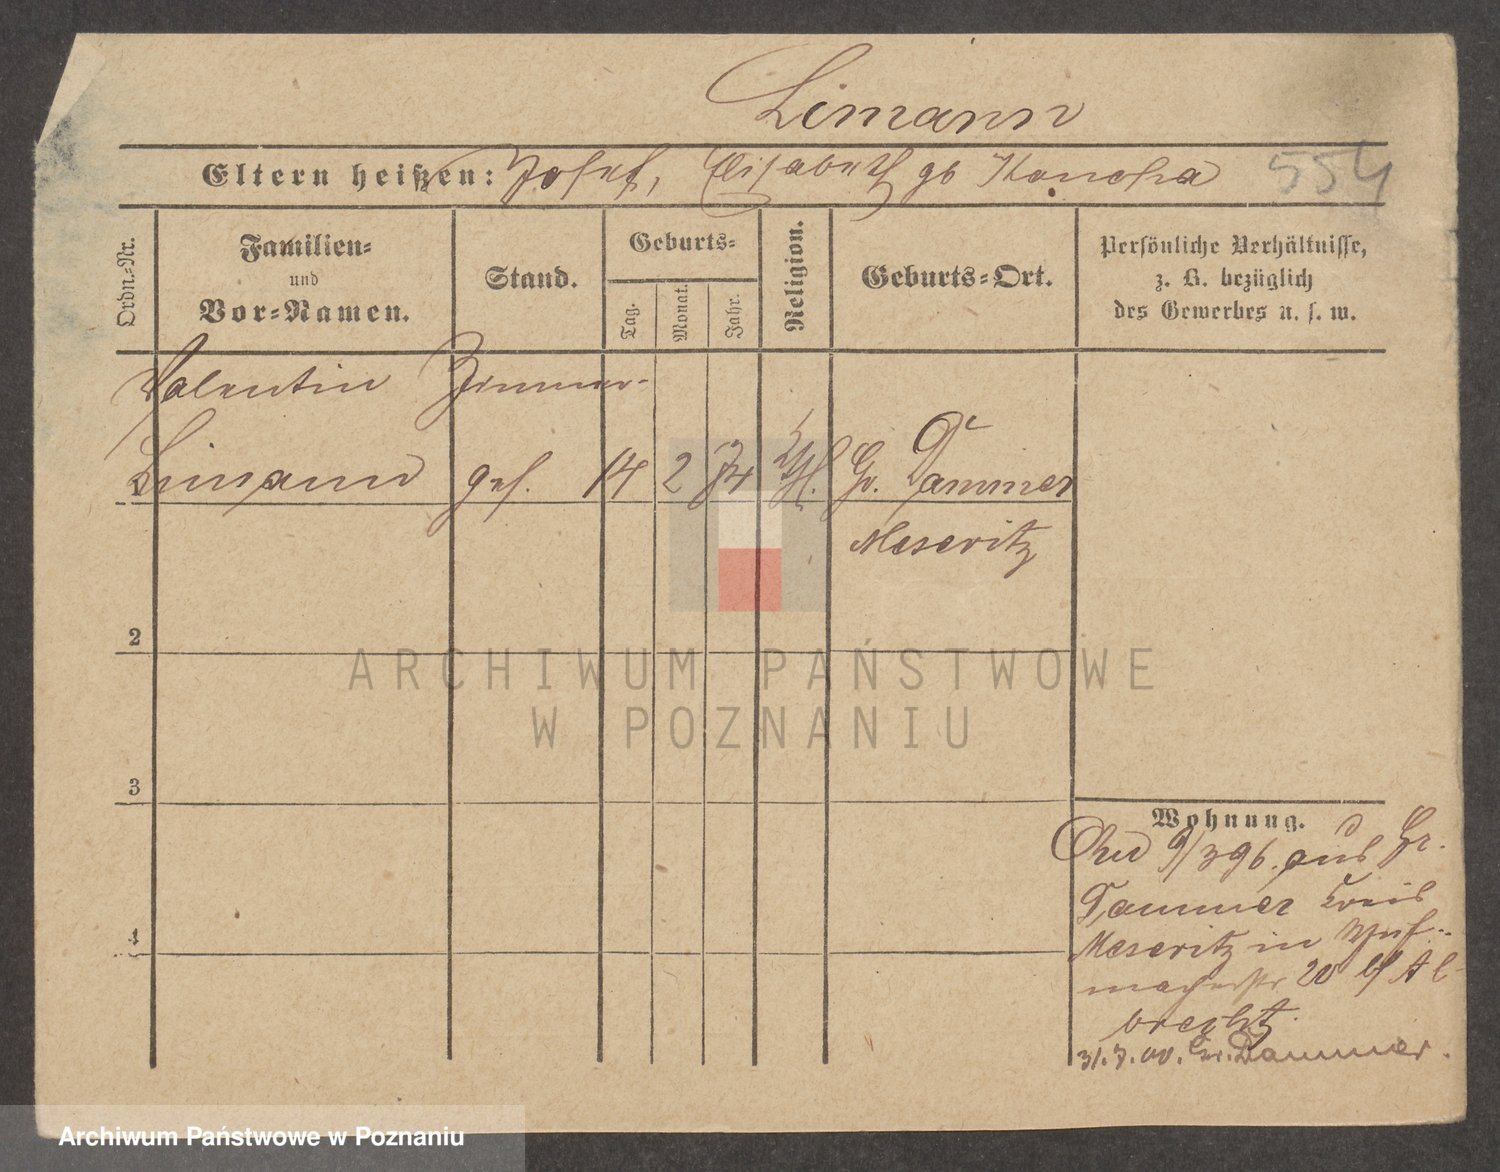 Limann
Eltern heißen: Josef, Elisabeth gb Koncha
554
Ordn.-Nr.
Familien-
und
Vor-Namen.
Stand.
Geburts-
Tag.
Monat.
Jahr.
Religion.
Geburts-Ort.
Persönliche Verhältnisse,
z. B. bezüglich
des Gewerbes u. s. w.
Valentin Zimmer-
1 Limann ges. 14 2 74 Kth. Gr. Dammer
Meseritz
2
3
4
Wohnung.
9/3 96. aus Gr.
Dammer Kreis
Meseritz in
macherstr 20 b/ Al-
brecht
31.7.00. Gr. Dammer.
ARCHIWUM PAŃSTWOWE
W POZNANIU
Archiwum Państwowe w Poznaniu